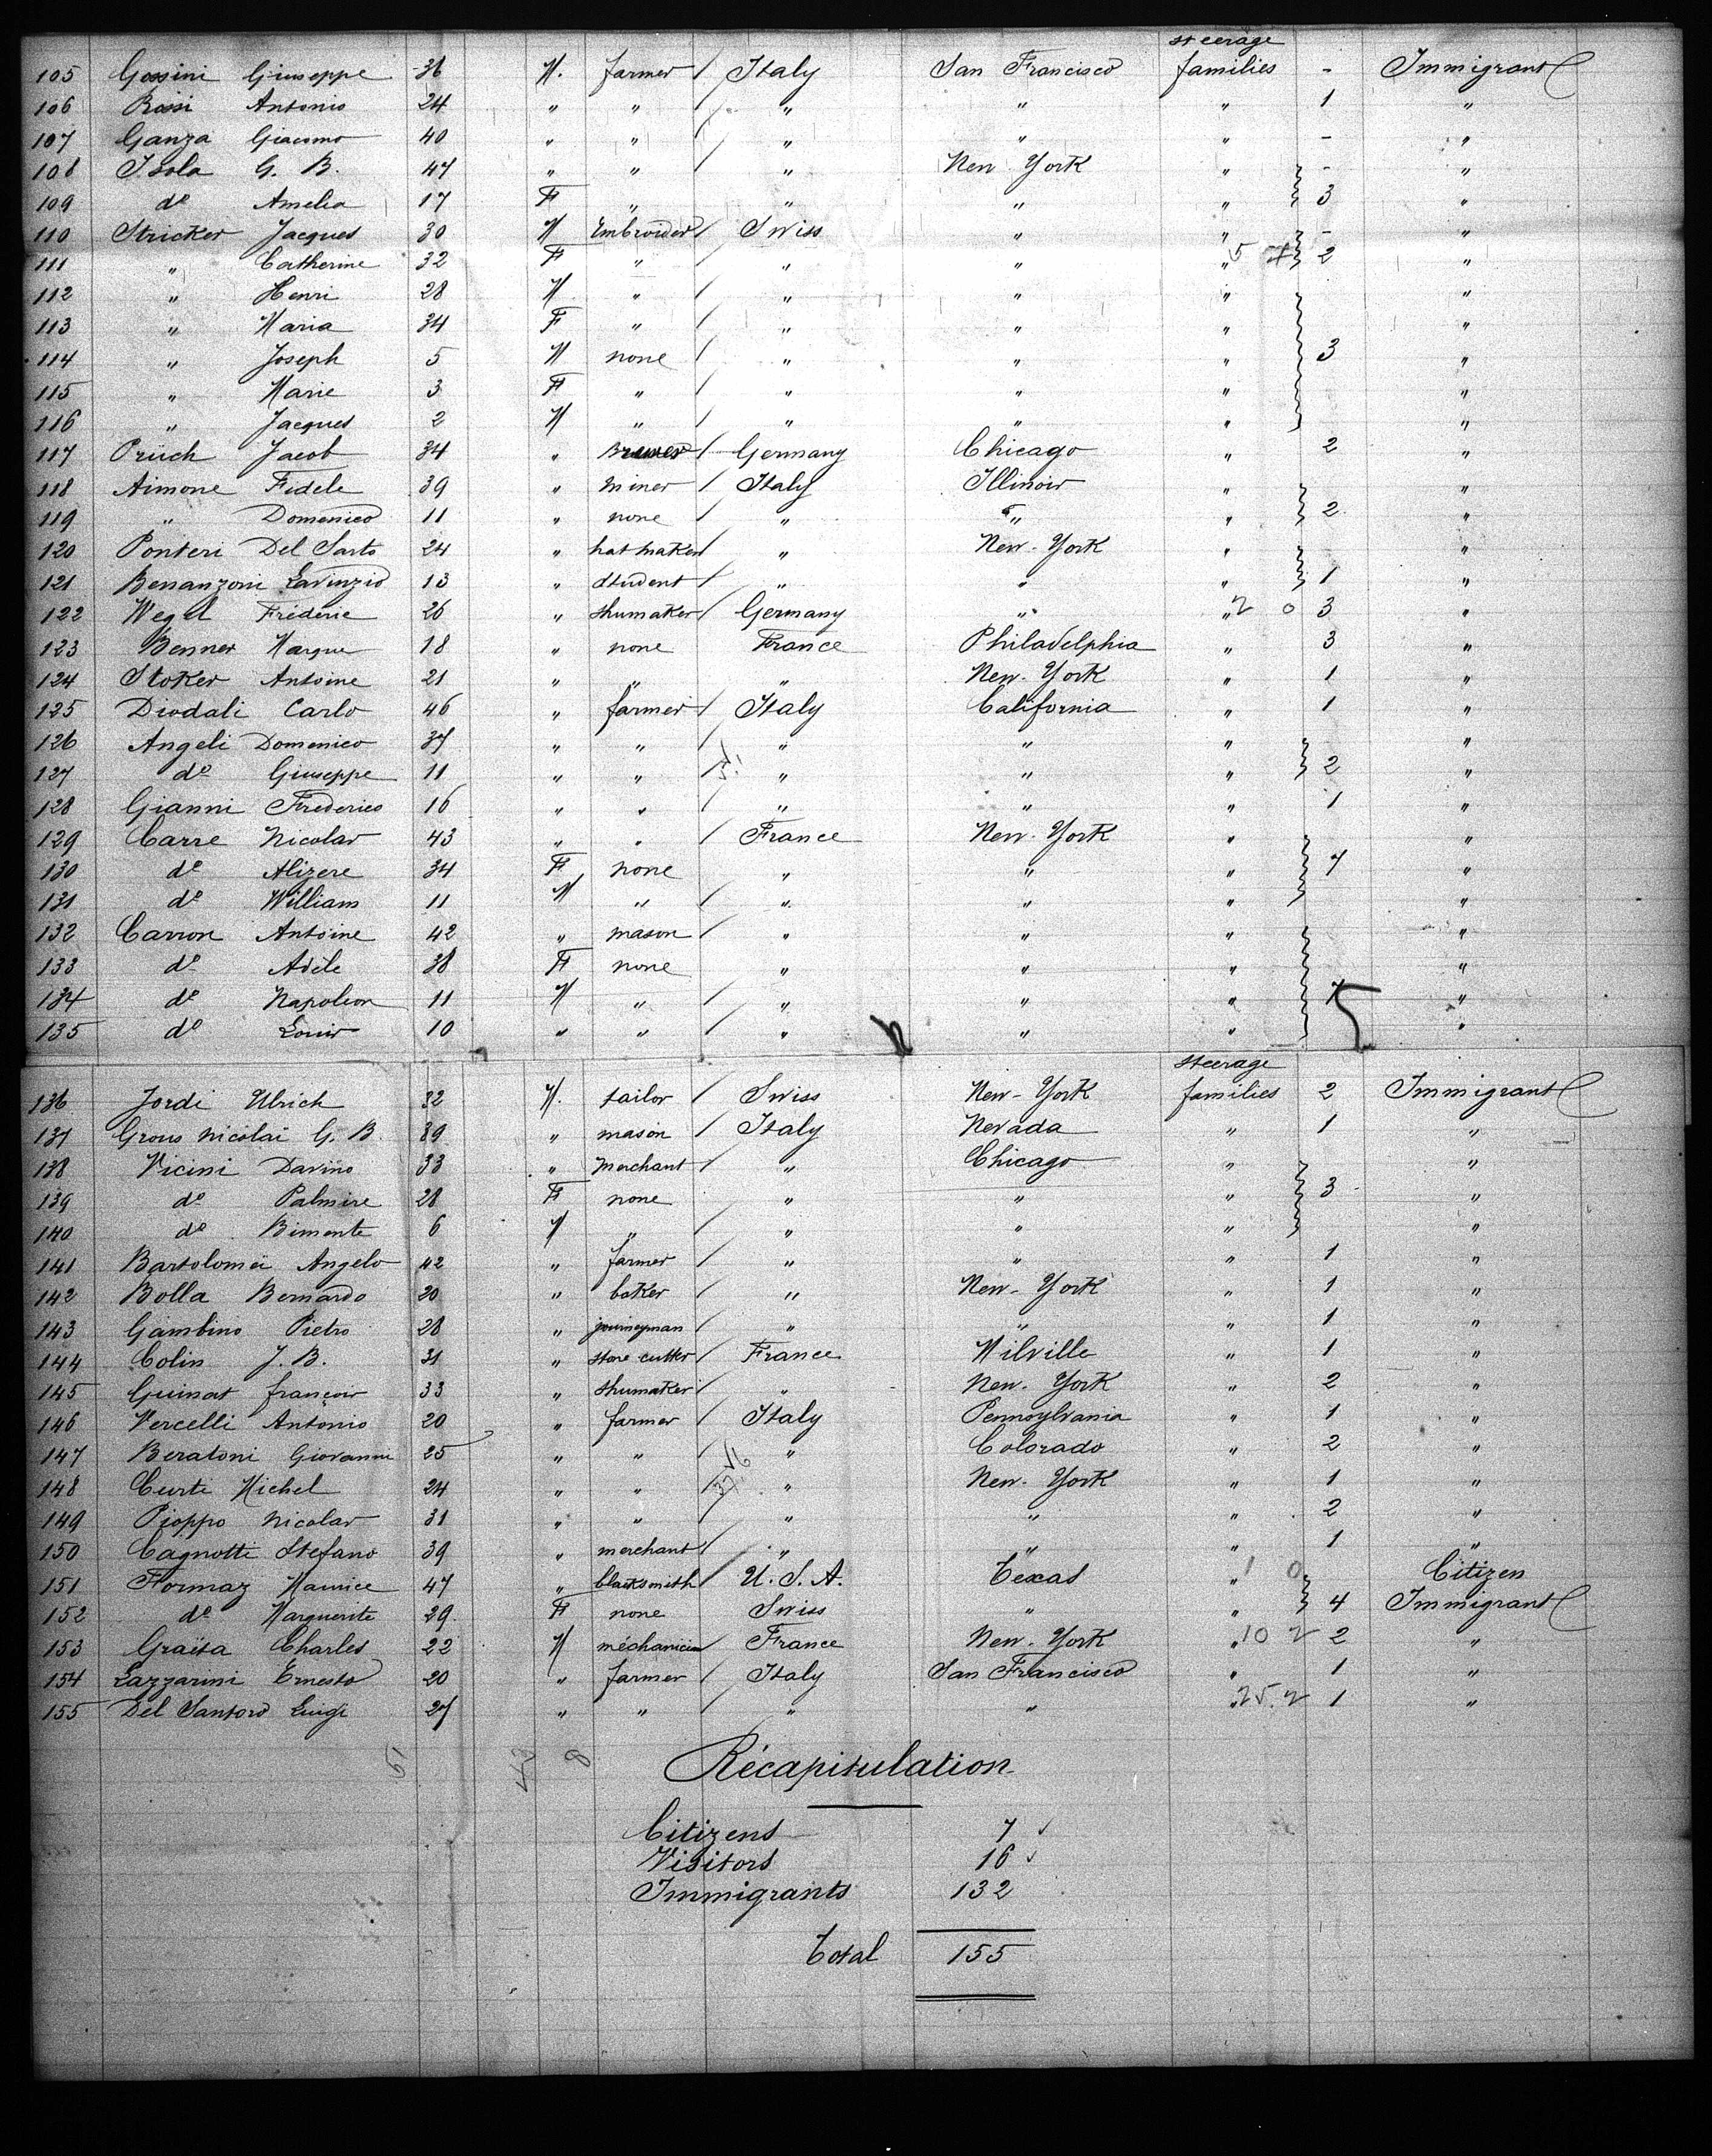 steerage
105 Gossini Giuseppe 36 M. farmer / Italy San Francisco families - Immigrant
106 Rossi Antonio 24 " " / " " " 1 "
107 Ganza Giacomo 40 " " / " " " - "
108 Isola G. B. 47 " " / " New York " - "
109 do Amelia 17 F " " " " 3 "
110 Stricker Jacques 30 M Embroider / Swiss " " - "
111 " Catherine 32 F " / " " " 5 2 "
112 " Henri 28 M " / " " " "
113 " Maria 34 F " / " " " "
114 " Joseph 5 M none / " " " 3 "
115 " Marie 3 F " / " " " "
116 " Jacques 2 M " / " " " "
117 Prüch Jacob 34 " Brewer / Germany Chicago " 2 "
118 Aimone Fidele 39 " miner / Italy Illinois " "
119 " Domenico 11 " none / " " " 2 "
120 Ponteri Del Sarto 24 " hat maker " New-York " "
121 Benanzoni Lavinzio 13 " student / " " " 1 "
122 Wegel Fréderic 26 " shumaker / Germany " " 2 0 3 "
123 Benner Margue 18 " none France Philadelphia " 3 "
124 Stoker Antoine 21 " " / " New-York " 1 "
125 Diodali Carlo 46 " farmer / Italy California " 1 "
126 Angeli Domenico 37 " " / " " " "
127 do Giuseppe 11 " " / " " " 2 "
128 Gianni Frederico 16 " " / " " " 1 "
129 Carre Nicolas 43 " " / France New-York " "
130 do Alizere 34 F none " " " 7 "
131 do William 11 M " / " " " "
132 Carron Antoine 42 " mason / " " " "
133 do Adèle 38 F none " " " "
134 do Napoleon 11 M " / " " " 7 "
135 do Louis 10 " " / " " " "
steerage
136 Jordi Ulrich 32 M. tailor / Swiss New-York families 2 Immigrant
137 Grous Nicolai G. B. 39 " mason / Italy Nevada " 1 "
138 Vicini Davino 33 " Merchant / " Chicago " "
139 do Palmire 28 F none " " " 3 "
140 do Bimente 6 M " / " " " "
141 Bartolomei Angelo 42 " farmer / " " " 1 "
142 Bolla Bernardo 20 " baker / " New-York " 1 "
143 Gambino Pietro 28 " journeyman / " " " 1 "
144 Colin J. B. 31 " stone cutter / France Milville " 1 "
145 Guinat françois 33 " shumaker / " New-York " 2 "
146 Vercelli Antonio 20 " farmer / Italy Pennsylvania " 1 "
147 Beratoni Giovanni 25 " " / " Colorado " 2 "
148 Curti Michel 24 " " / " New-York " 1 "
149 Pioppo Nicolas 31 " " / " " " 2 "
150 Cagnotti Stefano 39 " merchant / " " " 1 "
151 Formaz Maurice 47 " blacksmith / U. S. A. Texas " 1 0 Citizen
152 do Marguerite 29 F none Swiss " " 4 Immigrant
153 Graïsa Charles 22 M méchanicien France New-York " 10 2 2 "
154 Lazzarini Ernesto 20 " farmer / Italy San Francisco " 1 "
155 Del Santoro Luigi 27 " " / " " " 25. 2 1 "
51 43 8
Récapitulation
Citizens 7
Visitors 16
Immigrants 132
Total 155